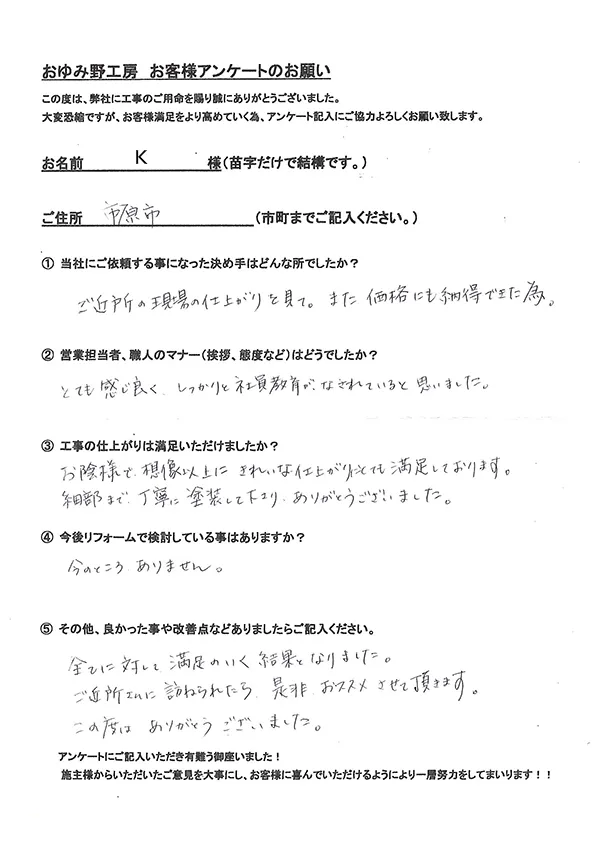 おゆみ野工房　お客様アンケートのお願い
この度は、弊社に工事のご用命を賜り誠にありがとうございました。
大変恐縮ですが、お客様満足をより高めていく為、アンケート記入にご協力よろしくお願い致します。
お名前　K　様(苗字だけで結構です。)
ご住所　市原市　(市町までご記入ください。)
① 当社にご依頼する事になった決め手はどんな所でしたか？
ご近所の現場の仕上がりを見て。また価格にも納得できた為。
② 営業担当者、職人のマナー(挨拶、態度など)はどうでしたか？
とても感じ良く、しっかりと社員教育が、なされていると思いました。
③ 工事の仕上がりは満足いただけましたか？
お陰様で、想像以上にきれいな仕上がりにとても満足しております。
細部まで、丁寧に塗装して下さり、ありがとうございました。
④ 今後リフォームで検討している事はありますか？
今のところ、ありません。
⑤ その他、良かった事や改善点などありましたらご記入ください。
全てに対して満足のいく結果となりました。
ご近所さんに訪ねられたら、是非おススメさせて頂きます。
この度は ありがとうございました。
アンケートにご記入いただき有難う御座いました！
施主様からいただいたご意見を大事にし、お客様に喜んでいただけるようにより一層努力をしてまいります！！